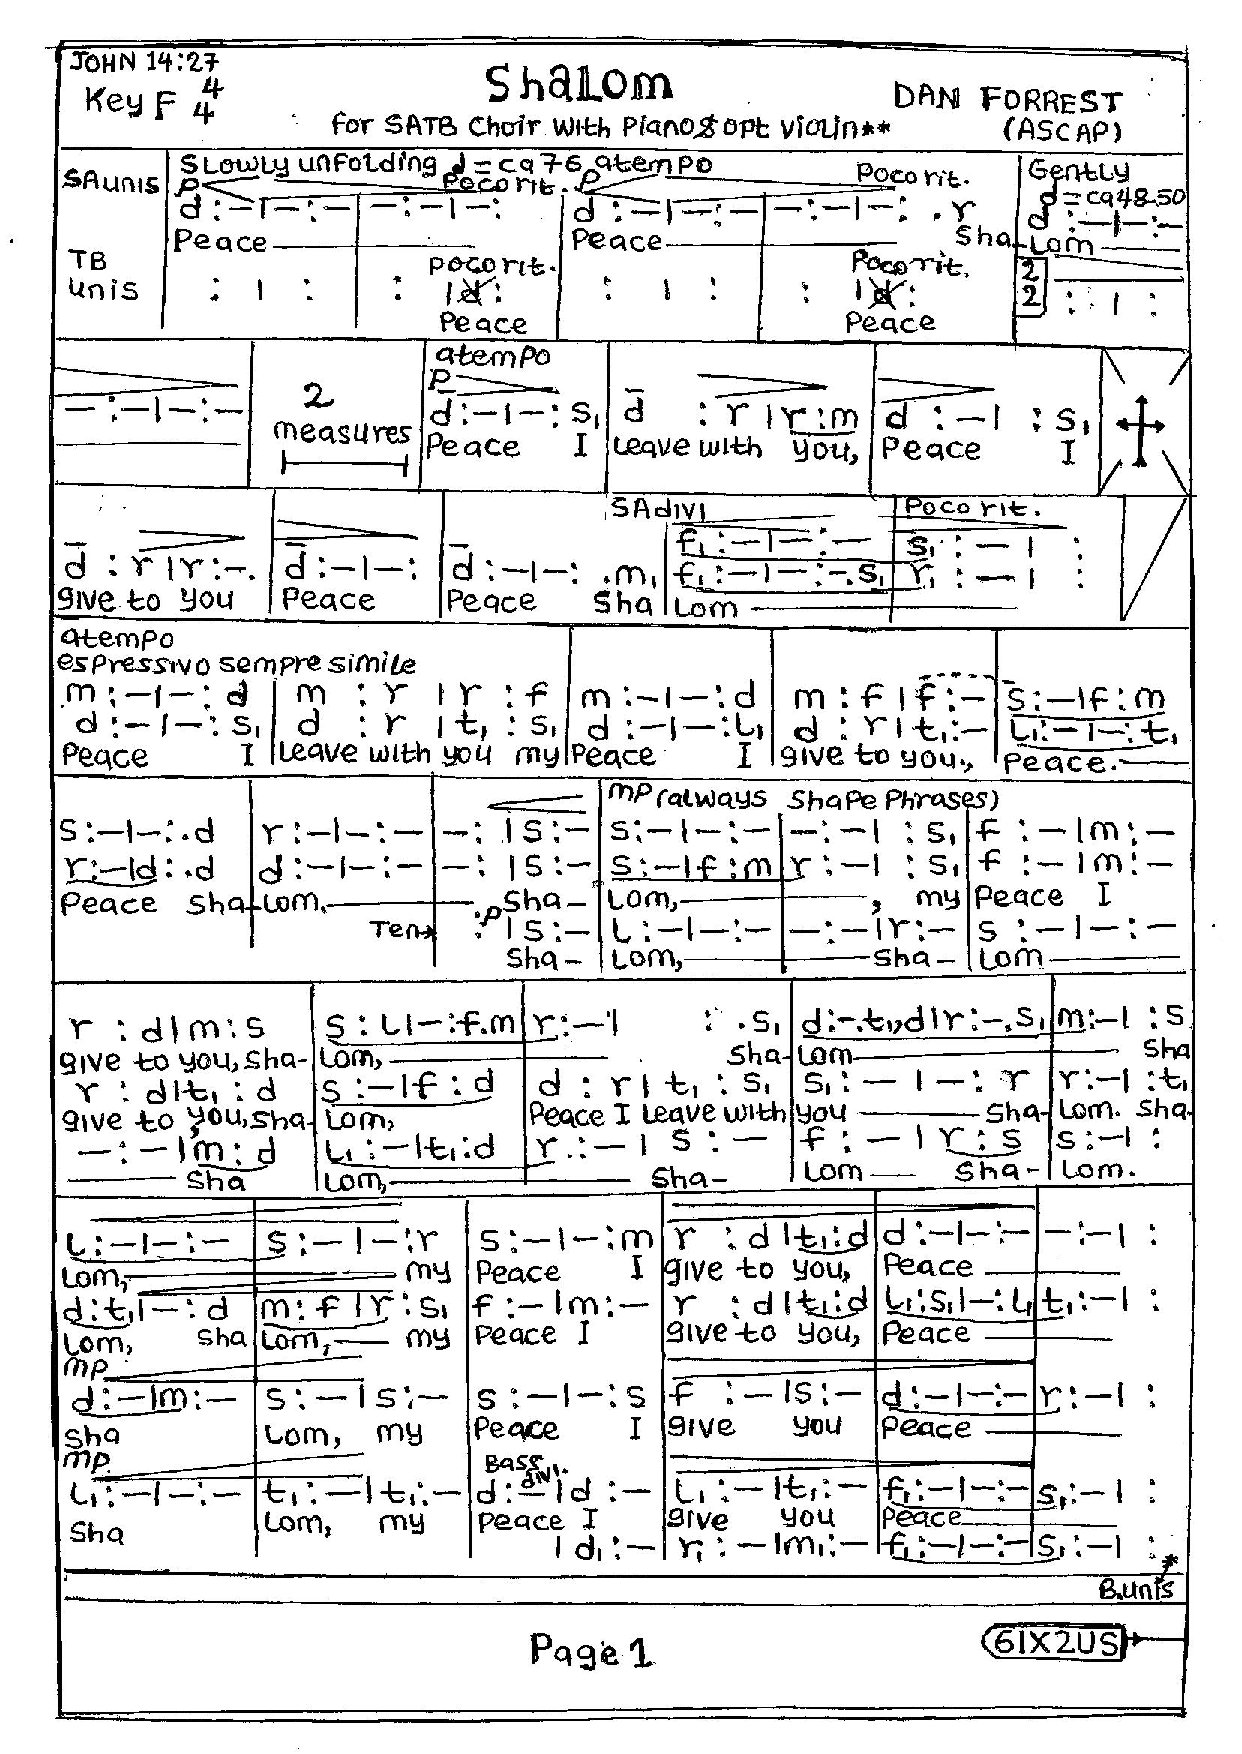 JOHN 14:27
Shalom
Key F 4/4
DAN FORREST
for SATB Choir with Piano & opt violin**
(ASCAP)
SA unis
Slowly unfolding d = ca 76 a tempo
Poco rit.
Poco rit.
Gently
d = ca 48-50
p
p
d :–|–:– –:–|–: d :–|–:– –:–|–: .r d :–|–:–
Peace Peace Sha-Lom
TB
unis
Poco rit. Poco rit.
: | : : |d: : | : : |d: 2/2 : | :
Peace Peace
a tempo
P
2
measures
–:–|–:– d:–|–:s₁ d :r|r:m d :–| :s₁
Peace I Leave with you, Peace I
SA divi
Poco rit.
f₁:–|–:– s₁:–| :
d :r|r:–. d:–|–: d:–|–: .m₁ f₁:–|–:–.s₁ r₁:–| :
give to you Peace Peace Sha Lom
a tempo
espressivo sempre simile
m:–|–:d m :r |r :f m:–|–:d m:f|f:– s:–|f:m
d:–|–:s₁ d :r |t₁:s₁ d:–|–:l₁ d:r|t₁:– l₁:–|–:t₁
Peace I Leave with you my Peace I give to you., Peace.
MP (always shape phrases)
s:–|–:.d r:–|–:– –: |s:– s:–|–:– –:–| :s₁ f :–|m:–
r:–|d:.d d:–|–:– –: |s:– s:–|f:m r:–| :s₁ f :–|m:–
Peace Sha-Lom. Sha- Lom, , my Peace I
Ten→ :P|s:– l:–|–:– –:–|r:– s :–|–:–
Sha- Lom, Sha- Lom
r :d|m:s s:l|–:f.m r:–| : .s₁ d:–.t₁,d|r:–.s₁ m:–| :s
give to you, Sha- Lom, Sha-Lom Sha
r :d|t₁:d s:–|f:d d :r|t₁:s₁ s₁:–|–:r r:–| :t₁
give to you, Sha- Lom, Peace I Leave with you Sha- Lom. Sha-
–:–|m:d l₁:–|t₁:d r:–|s:– f:–|r:s s:–| :
Sha Lom, Sha- Lom Sha- Lom.
l:–|–:– s:–|–:r s:–|–:m r :d|t₁:d d:–|–:– –:–| :
Lom, my Peace I give to you, Peace
d:t₁|–:d m:f|r:s₁ f:–|m:– r :d|t₁:d l₁:s₁|–:l₁ t₁:–| :
Lom, Sha Lom, my Peace I give to you, Peace
MP
d:–|m:– s:–|s:– s:–|–:s f :–|s:– d:–|–:– r:–| :
Sha Lom, my Peace I give you Peace
MP
Bass divi.
l₁:–|–:– t₁:–|t₁:– d:–|d:– l₁:–|t₁:– f₁:–|–:– s₁:–| :
Sha Lom, my Peace I give you Peace
|d₁:– r₁:–|m₁:– f₁:–|–:– s₁:–| :
B.unis
Page 1
61X2US